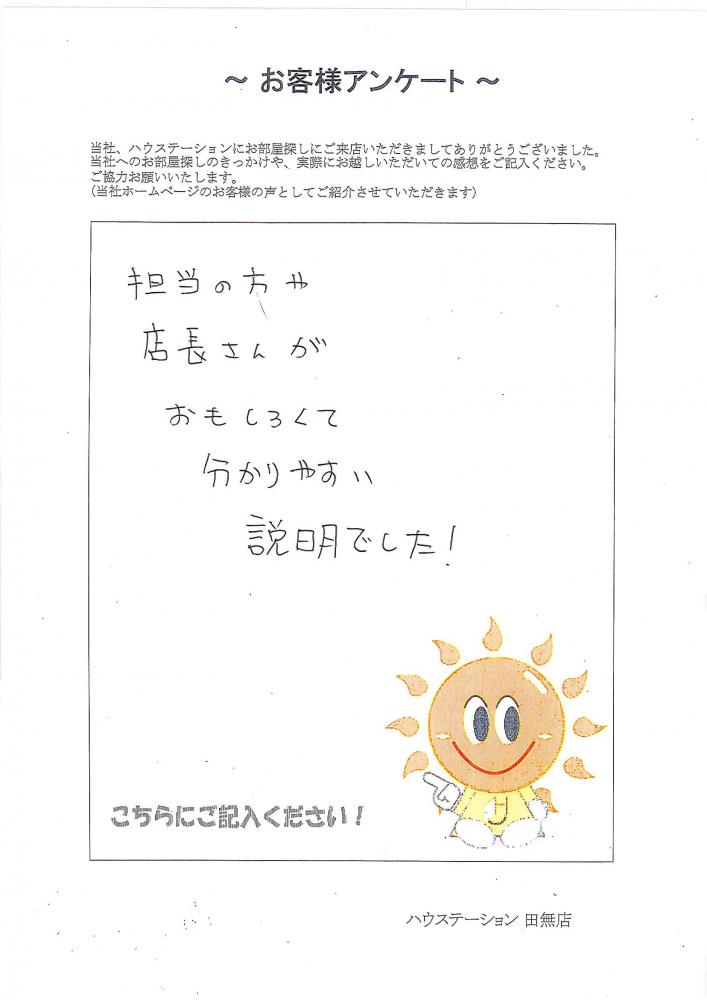 ～ お客様アンケート ～
当社、ハウステーションにお部屋探しにご来店いただきましてありがとうございました。
当社へのお部屋探しのきっかけや、実際にお越しいただいての感想をご記入ください。
ご協力お願いいたします。
（当社ホームページのお客様の声としてご紹介させていただきます）
担当の方や
店長さんが
おもしろくて
分かりやすい
説明でした！
こちらにご記入ください！
ハウステーション 田無店